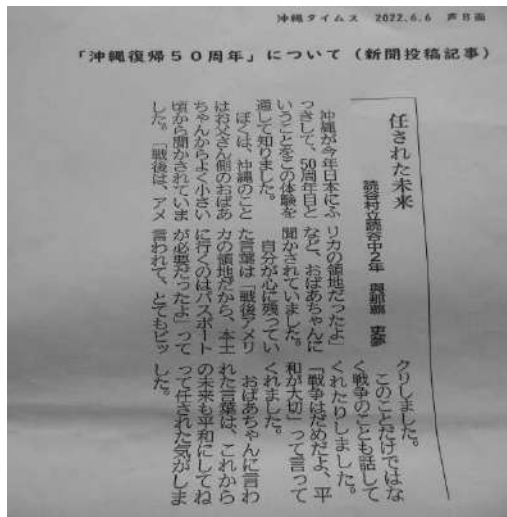 沖縄タイムス 2022.6.6 声B面
「沖縄復帰50周年」について(新聞投稿記事)
任された未来
読谷村立読谷中2年 與那覇
沖縄が今年日本にふ
っきして、50周年目と
いうことをこの体験を
通して知りました。
ぼくは、沖縄のこと
はお父さん側のおばあ
ちゃんからよく小さい
頃から聞かされていま
した。「戦後は、アメ
リカの領地だったよ」
など、おばあちゃんに
聞かされていました。
自分が心に残ってい
た言葉は「戦後アメリ
カの領地だから、本土
に行くのはパスポート
が必要だったよ」って
言われて、とてもビッ
クリしました。
このことだけではな
く戦争のことも話して
くれたりしました。
「戦争はだめだよ、平
和が大切」って言って
くれました。
おばあちゃんに言わ
れた言葉は、これから
の未来も平和にしてね
って任された気がしま
した。